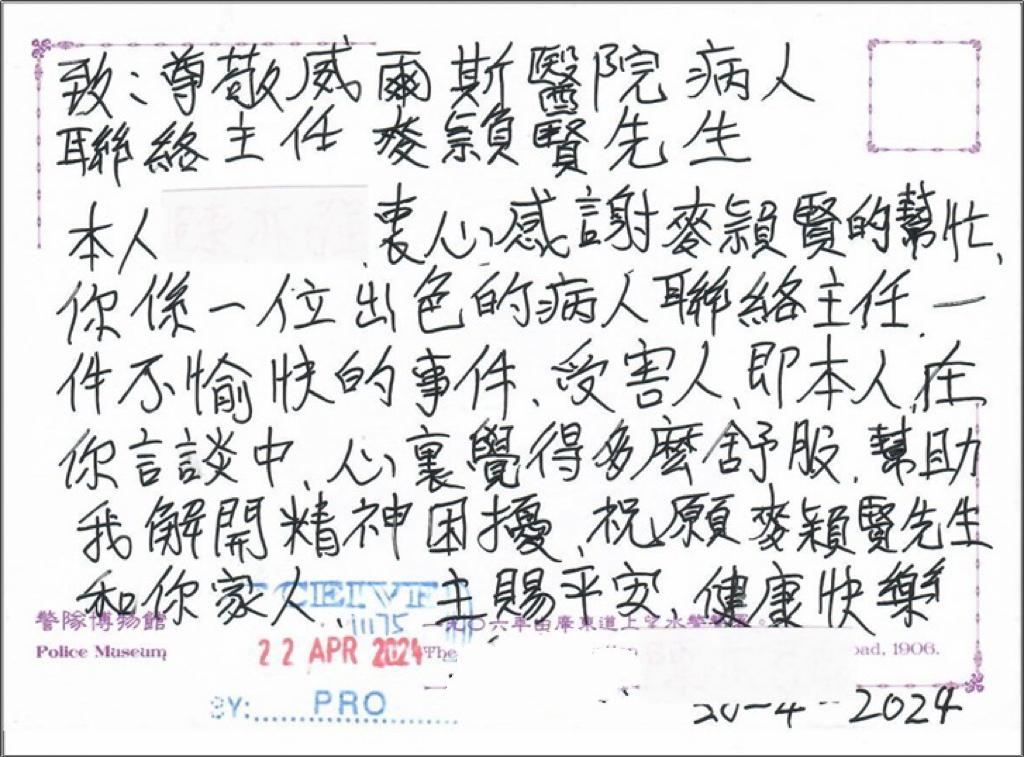 致：尊敬威爾斯醫院病人
聯絡主任 麥頴賢先生
本人 衷心感謝麥頴賢的幫忙、
你係一位出色的病人聯絡主任、一
件不愉快的事件、受害人、即本人、在
你言談中、心裏覺得多麼舒服、幫助
我解開精神困擾、祝願麥頴賢先生
和你家人、主賜平安、健康快樂
CEIVE
11175
警隊博物館
一九〇六年由廣東道上望水警
Police Museum
22 APR 2024
The
oad, 1906.
BY: PRO
20-4-2024